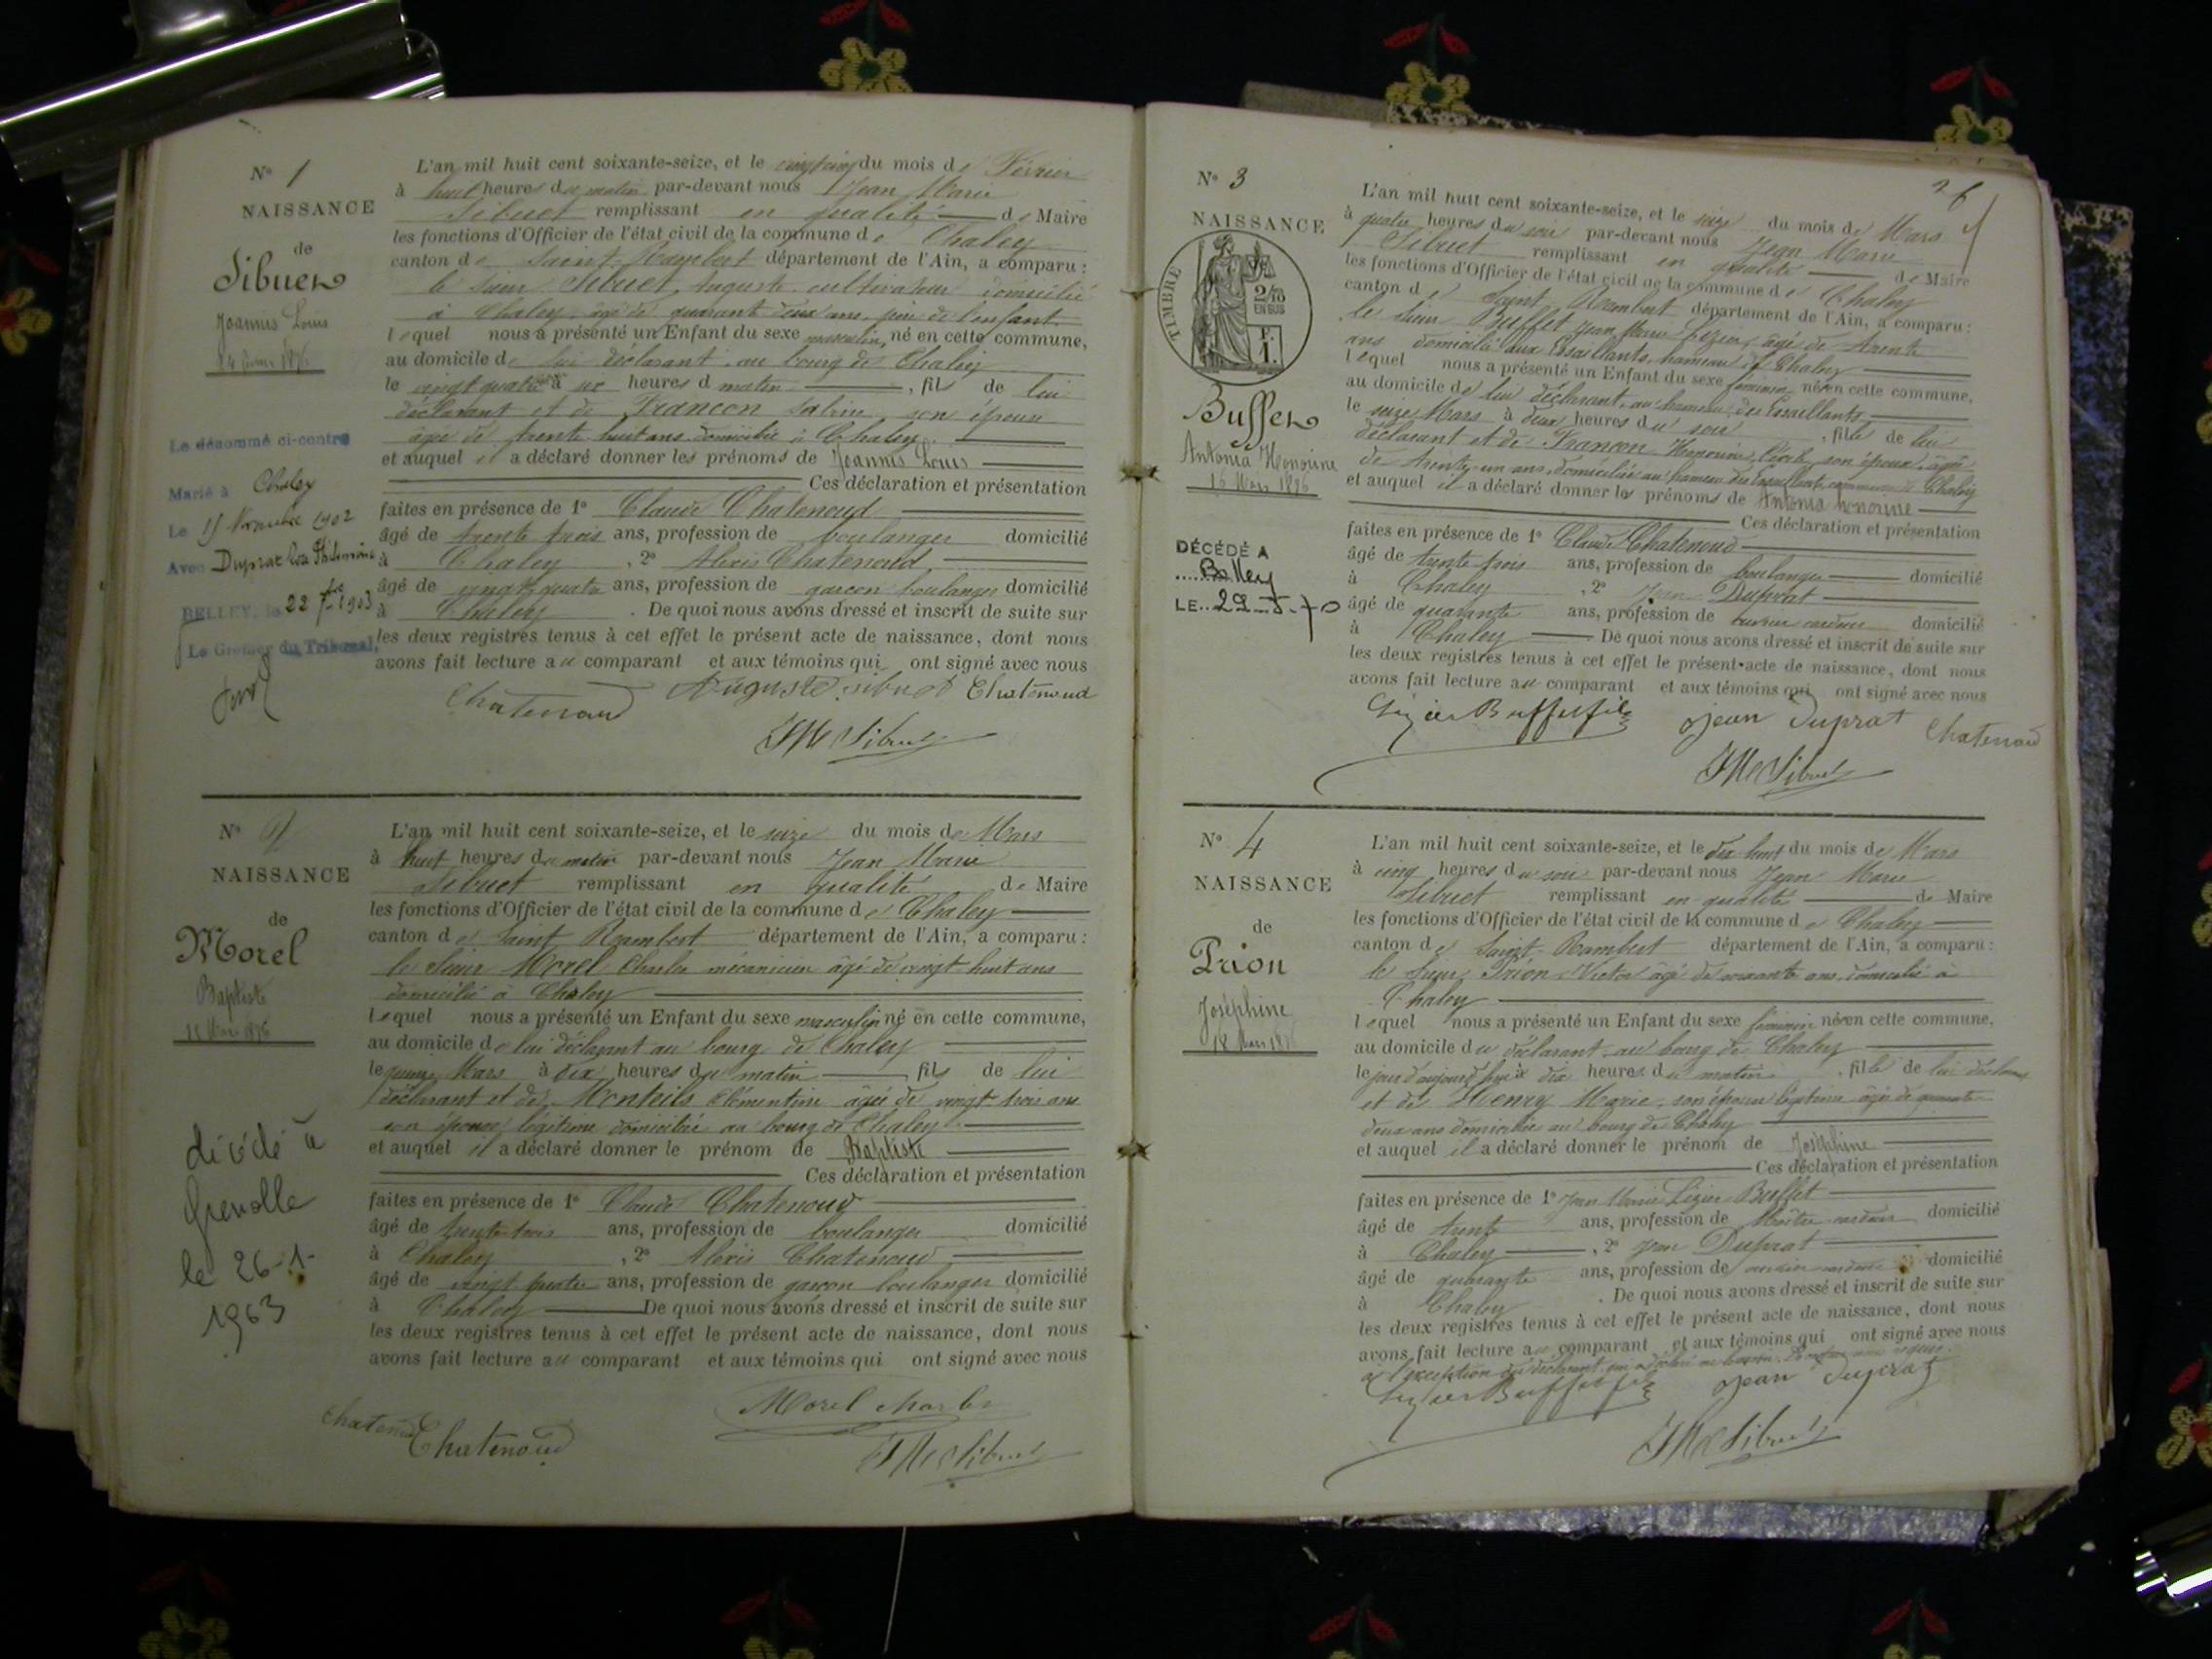 N° 1
NAISSANCE
de
Sibuet
Joannis Louis
24 février 1876
Le dénommé ci-contre
Marié à Chaley
Le 15 Novembre 1902
Avec Duprat Philomène
BELLEY, le 22 1903
Le Greffier du Tribunal,
L'an mil huit cent soixante-seize, et le vingt cinq du mois de Février
à huit heures du matin par-devant nous Jean Marie
Sibuet remplissant en qualité de Maire
les fonctions d'Officier de l'état civil de la commune de Chaley
canton de Saint-Rambert département de l'Ain, a comparu :
le sieur Sibuet Auguste cultivateur domicilié
à Chaley, âgé de quarante deux ans, père de l'enfant
lequel nous a présenté un Enfant du sexe masculin, né en cette commune,
au domicile de lui déclarant au bourg de Chaley
le vingt quatre à heures d matin, fils de lui
déclarant et de Francon son épouse
âgée de trente huit ans domiciliée à Chaley
et auquel il a déclaré donner les prénoms de Joannis Louis
Ces déclaration et présentation
faites en présence de 1° Claude Chatenoud
âgé de trente trois ans, profession de boulanger domicilié
à Chaley, 2° Alexis Chatenoud
âgé de vingt quatre ans, profession de garçon boulanger domicilié
à Chaley. De quoi nous avons dressé et inscrit de suite sur
les deux registres tenus à cet effet le présent acte de naissance, dont nous
avons fait lecture au comparant et aux témoins qui ont signé avec nous
Chatenoud Auguste sibuet Chatenoud
JM Sibuet
N° 2
NAISSANCE
de
Morel
Baptiste
15 Mars 1876
décédé à
Grenoble
le 26-1-
1963
L'an mil huit cent soixante-seize, et le seize du mois de Mars
à huit heures du matin par-devant nous Jean Marie
Sibuet remplissant en qualité de Maire
les fonctions d'Officier de l'état civil de la commune de Chaley
canton de Saint Rambert département de l'Ain, a comparu :
le sieur Morel Charles mécanicien âgé de vingt huit ans
domicilié à Chaley
lequel nous a présenté un Enfant du sexe masculin né en cette commune,
au domicile de lui déclarant au bourg de Chaley
le quinze Mars à dix heures du matin fils de lui
déclarant et de Monteils Clémentine âgée de vingt trois ans
son épouse légitime domiciliée au bourg de Chaley
et auquel il a déclaré donner le prénom de Baptiste
Ces déclaration et présentation
faites en présence de 1° Claude Chatenoud
âgé de trente trois ans, profession de boulanger domicilié
à Chaley, 2° Alexis Chatenoud
âgé de vingt quatre ans, profession de garçon boulanger domicilié
à Chaley De quoi nous avons dressé et inscrit de suite sur
les deux registres tenus à cet effet le présent acte de naissance, dont nous
avons fait lecture au comparant et aux témoins qui ont signé avec nous
Morel charles
Chatenoud Chatenoud
JM Sibuet
26
N° 3
NAISSANCE
TIMBRE
2/10
EN SUS
F.
1.
Buffet
Antonia Honorine
16 Mars 1876
DÉCÉDÉ A
Belley
LE 29-5-70
L'an mil huit cent soixante-seize, et le seize du mois de Mars
à quatre heures du soir par-devant nous Jean Marie
Sibuet remplissant en qualité de Maire
les fonctions d'Officier de l'état civil de la commune de Chaley
canton de Saint-Rambert département de l'Ain, a comparu :
le sieur Buffet Jean Marie Lizier, âgé de trente
ans domicilié aux Essaillants, hameau de Chaley
lequel nous a présenté un Enfant du sexe féminin née en cette commune,
au domicile de lui déclarant, au hameau des Essaillants
le seize Mars à deux heures du soir, fille de lui
déclarant et de Francon Honorine son épouse, âgée
de trente-un ans, domiciliée au hameau des Essaillants, commune de Chaley
et auquel il a déclaré donner les prénoms de Antonia honorine
Ces déclaration et présentation
faites en présence de 1° Claude Chatenoud
âgé de trente trois ans, profession de boulanger domicilié
à Chaley, 2° Jean Duprat
âgé de quarante ans, profession de domicilié
à Chaley De quoi nous avons dressé et inscrit de suite sur
les deux registres tenus à cet effet le présent acte de naissance, dont nous
avons fait lecture au comparant et aux témoins qui ont signé avec nous
Lizier Buffet fils Jean Duprat Chatenoud
JM Sibuet
N° 4
NAISSANCE
de
Prion
Joséphine
18 Mars 1876
L'an mil huit cent soixante-seize, et le dix huit du mois de Mars
à cinq heures du soir par-devant nous Jean Marie
Sibuet remplissant en qualité de Maire
les fonctions d'Officier de l'état civil de la commune de Chaley
canton de Saint-Rambert département de l'Ain, a comparu :
le sieur Prion Victor âgé de soixante ans, domicilié à
Chaley
lequel nous a présenté un Enfant du sexe féminin née en cette commune,
au domicile du déclarant, au bourg de Chaley
le jour d'aujourd'hui à dix heures du matin, fille de lui déclarant
et de Henry Marie, son épouse légitime âgée de quarante
deux ans domiciliée au bourg de Chaley
et auquel il a déclaré donner le prénom de Joséphine
Ces déclaration et présentation
faites en présence de 1° Jean Marie Lizier Buffet
âgé de trente ans, profession de domicilié
à Chaley, 2° Jean Duprat
âgé de quarante ans, profession de domicilié
à Chaley. De quoi nous avons dressé et inscrit de suite sur
les deux registres tenus à cet effet le présent acte de naissance, dont nous
avons fait lecture au comparant et aux témoins qui ont signé avec nous
à l'exception du déclarant qui a déclaré ne
Lizier Buffet fils Jean Duprat
JM Sibuet